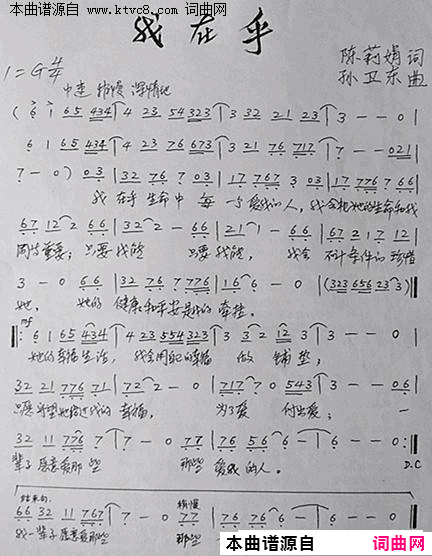 本曲谱源自 www.ktvc8.com 词曲网
我在乎
1=G 4/4
陈莉娟 词
孙卫东 曲
中速 稍慢 深情地
( 6 1 65 434 | 4 23 54 323 | 3 32 21 23 | 3 - - 0 |
6 1 65 434 | 4 23 76 673 | 3 21 76 717 | 7 - - 021 |
7 - 0 ) 03 | 32 76 7 03 | 17 767 3 03 | 17 776 7 66 |
我 在乎 生命中 每一个爱我的人,我会把她的生命和我
67 12 2 66 | 32 2 - 66 | 21 1 - 66 | 67 21 7 12 |
同等重要; 只要我能 只要我能, 我会 不计条件的 珍惜
3 - 0 66 | 32 76 7 776 | 16 6 - 0 | (323 656 23 3) |
她, 她的 健康和平安是我的 牵挂。
mf
6 1 65 434 | 4 23 554 323 | 3 32 12 3 | 3 - - 0 |
她的幸福生活, 我会用自己的幸福 做 铺 垫;
32 21 776 71 | 72 2 - 0 | 717 7 0 543 | 3 - - 06 |
只愿希望她 我的 幸福, 为了爱 付出爱; 一
32 11 776 7 | 7 - 0 77 | 76 56 6 - | 6 - - 0 :|
辈子愿意爱那些 那些 爱我的人。
D.C
结束句:
稍慢
66 32 11 767 | 7 - 0 77 | 76 76 6 - | 6
我一辈子愿意爱那些 那些
本曲谱源自
词曲网